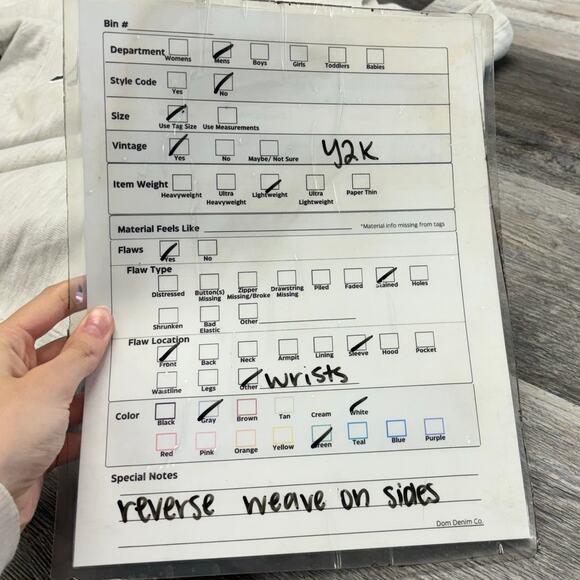 Bin #
Department Womens Mens Boys Girls Toddlers Babies
Style Code Yes No
Size Use Tag Size Use Measurements
Vintage Yes No Maybe/ Not Sure Y2K
Item Weight Heavyweight Ultra Heavyweight Lightweight Ultra Lightweight Paper Thin
Material Feels Like *Material info missing from tags
Flaws Yes No
Flaw Type
Distressed Button(s) Missing Zipper Missing/Broke Drawstring Missing Piled Faded Stained Holes
Shrunken Bad Elastic Other
Flaw Location
Front Back Neck Armpit Lining Sleeve Hood Pocket
Waistline Legs Other wrists
Color Black Gray Brown Tan Cream White
Red Pink Orange Yellow Green Teal Blue Purple
Special Notes
reverse weave on sides
Dom Denim Co.